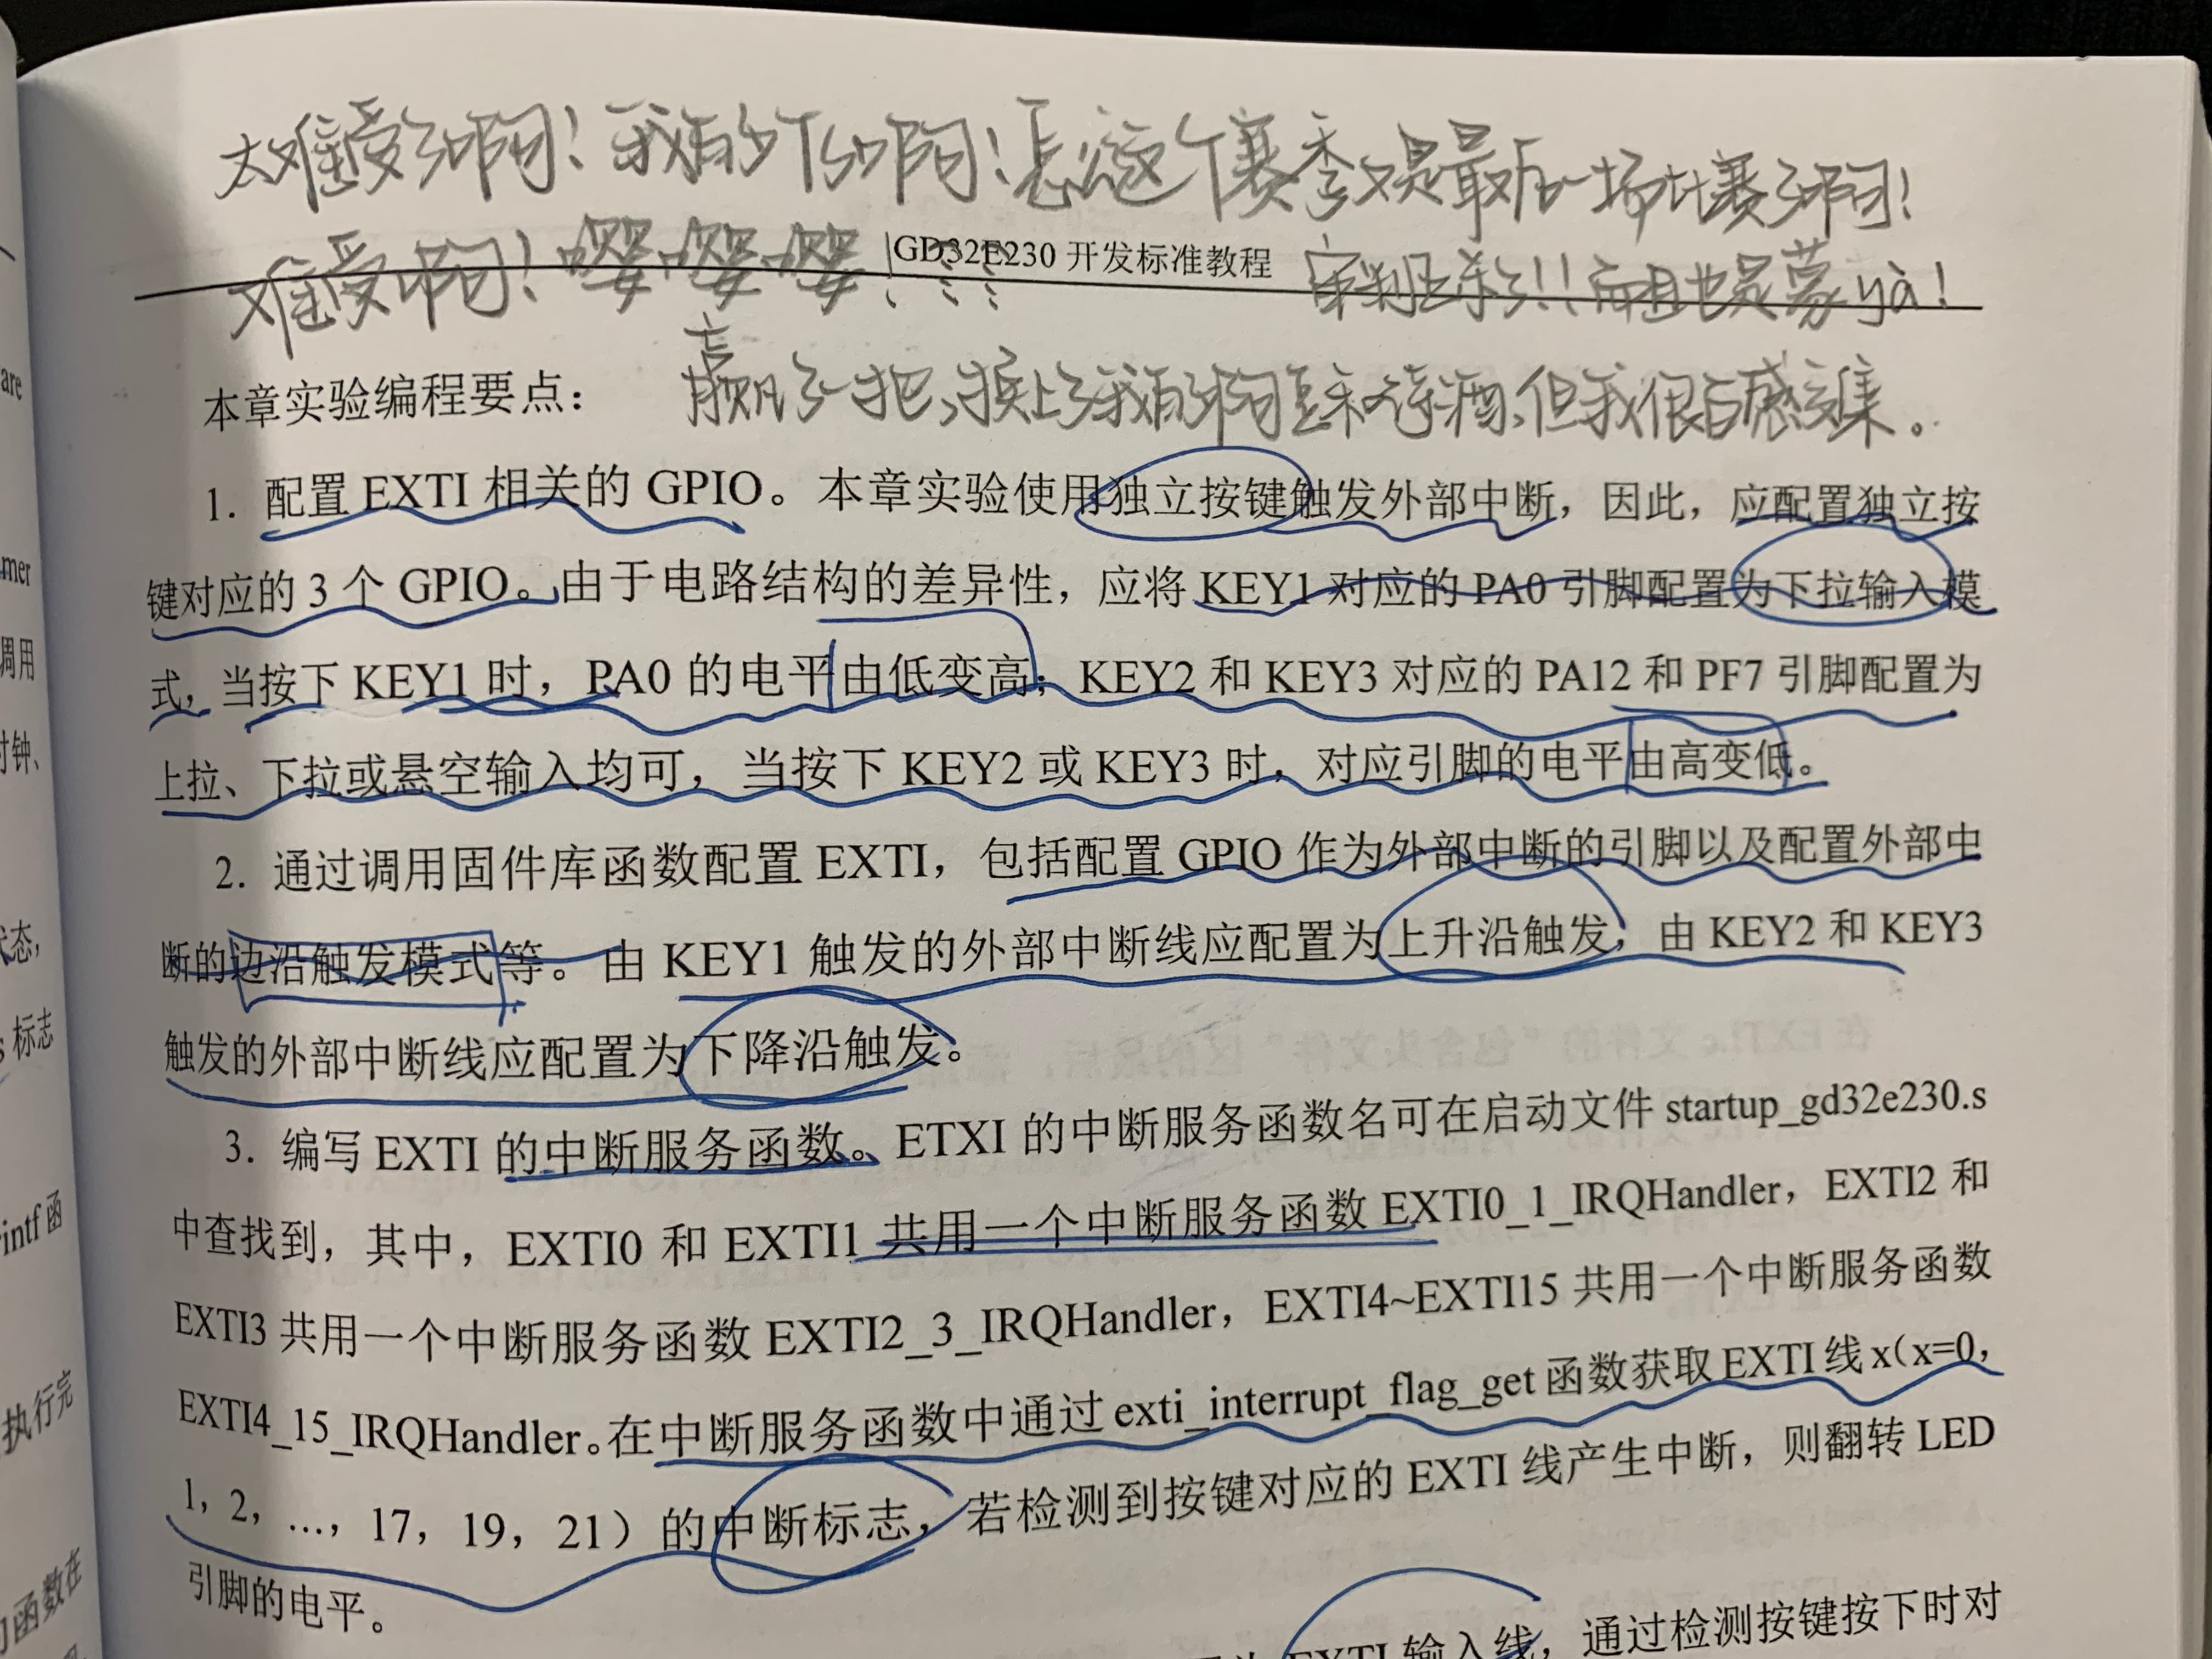 太难受了啊！我的TS啊！怎么这个赛季又是最后一场比赛了啊！
难受啊！嘤嘤嘤！
GD32E230 开发标准教程
而且也是蒙yà！
本章实验编程要点：
赢了一把，换上了我的 但我很百感交集。
1. 配置 EXTI 相关的 GPIO。本章实验使用独立按键触发外部中断，因此，应配置独立按
键对应的 3 个 GPIO。由于电路结构的差异性，应将 KEY1 对应的 PA0 引脚配置为下拉输入模
式，当按下 KEY1 时，PA0 的电平由低变高；KEY2 和 KEY3 对应的 PA12 和 PF7 引脚配置为
上拉、下拉或悬空输入均可，当按下 KEY2 或 KEY3 时，对应引脚的电平由高变低。
2. 通过调用固件库函数配置 EXTI，包括配置 GPIO 作为外部中断的引脚以及配置外部中
断的边沿触发模式等。由 KEY1 触发的外部中断线应配置为上升沿触发；由 KEY2 和 KEY3
触发的外部中断线应配置为下降沿触发。
3. 编写 EXTI 的中断服务函数。ETXI 的中断服务函数名可在启动文件 startup_gd32e230.s
中查找到，其中，EXTI0 和 EXTI1 共用一个中断服务函数 EXTI0_1_IRQHandler，EXTI2 和
EXTI3 共用一个中断服务函数 EXTI2_3_IRQHandler，EXTI4~EXTI15 共用一个中断服务函数
EXTI4_15_IRQHandler。在中断服务函数中通过 exti_interrupt_flag_get 函数获取 EXTI 线 x（x=0，
1，2，…，17，19，21）的中断标志，若检测到按键对应的 EXTI 线产生中断，则翻转 LED
引脚的电平。
EXTI 输入线，通过检测按键按下时对
are
mer
调用
时钟、
状态，
标志
intf 函
执行完
函数在